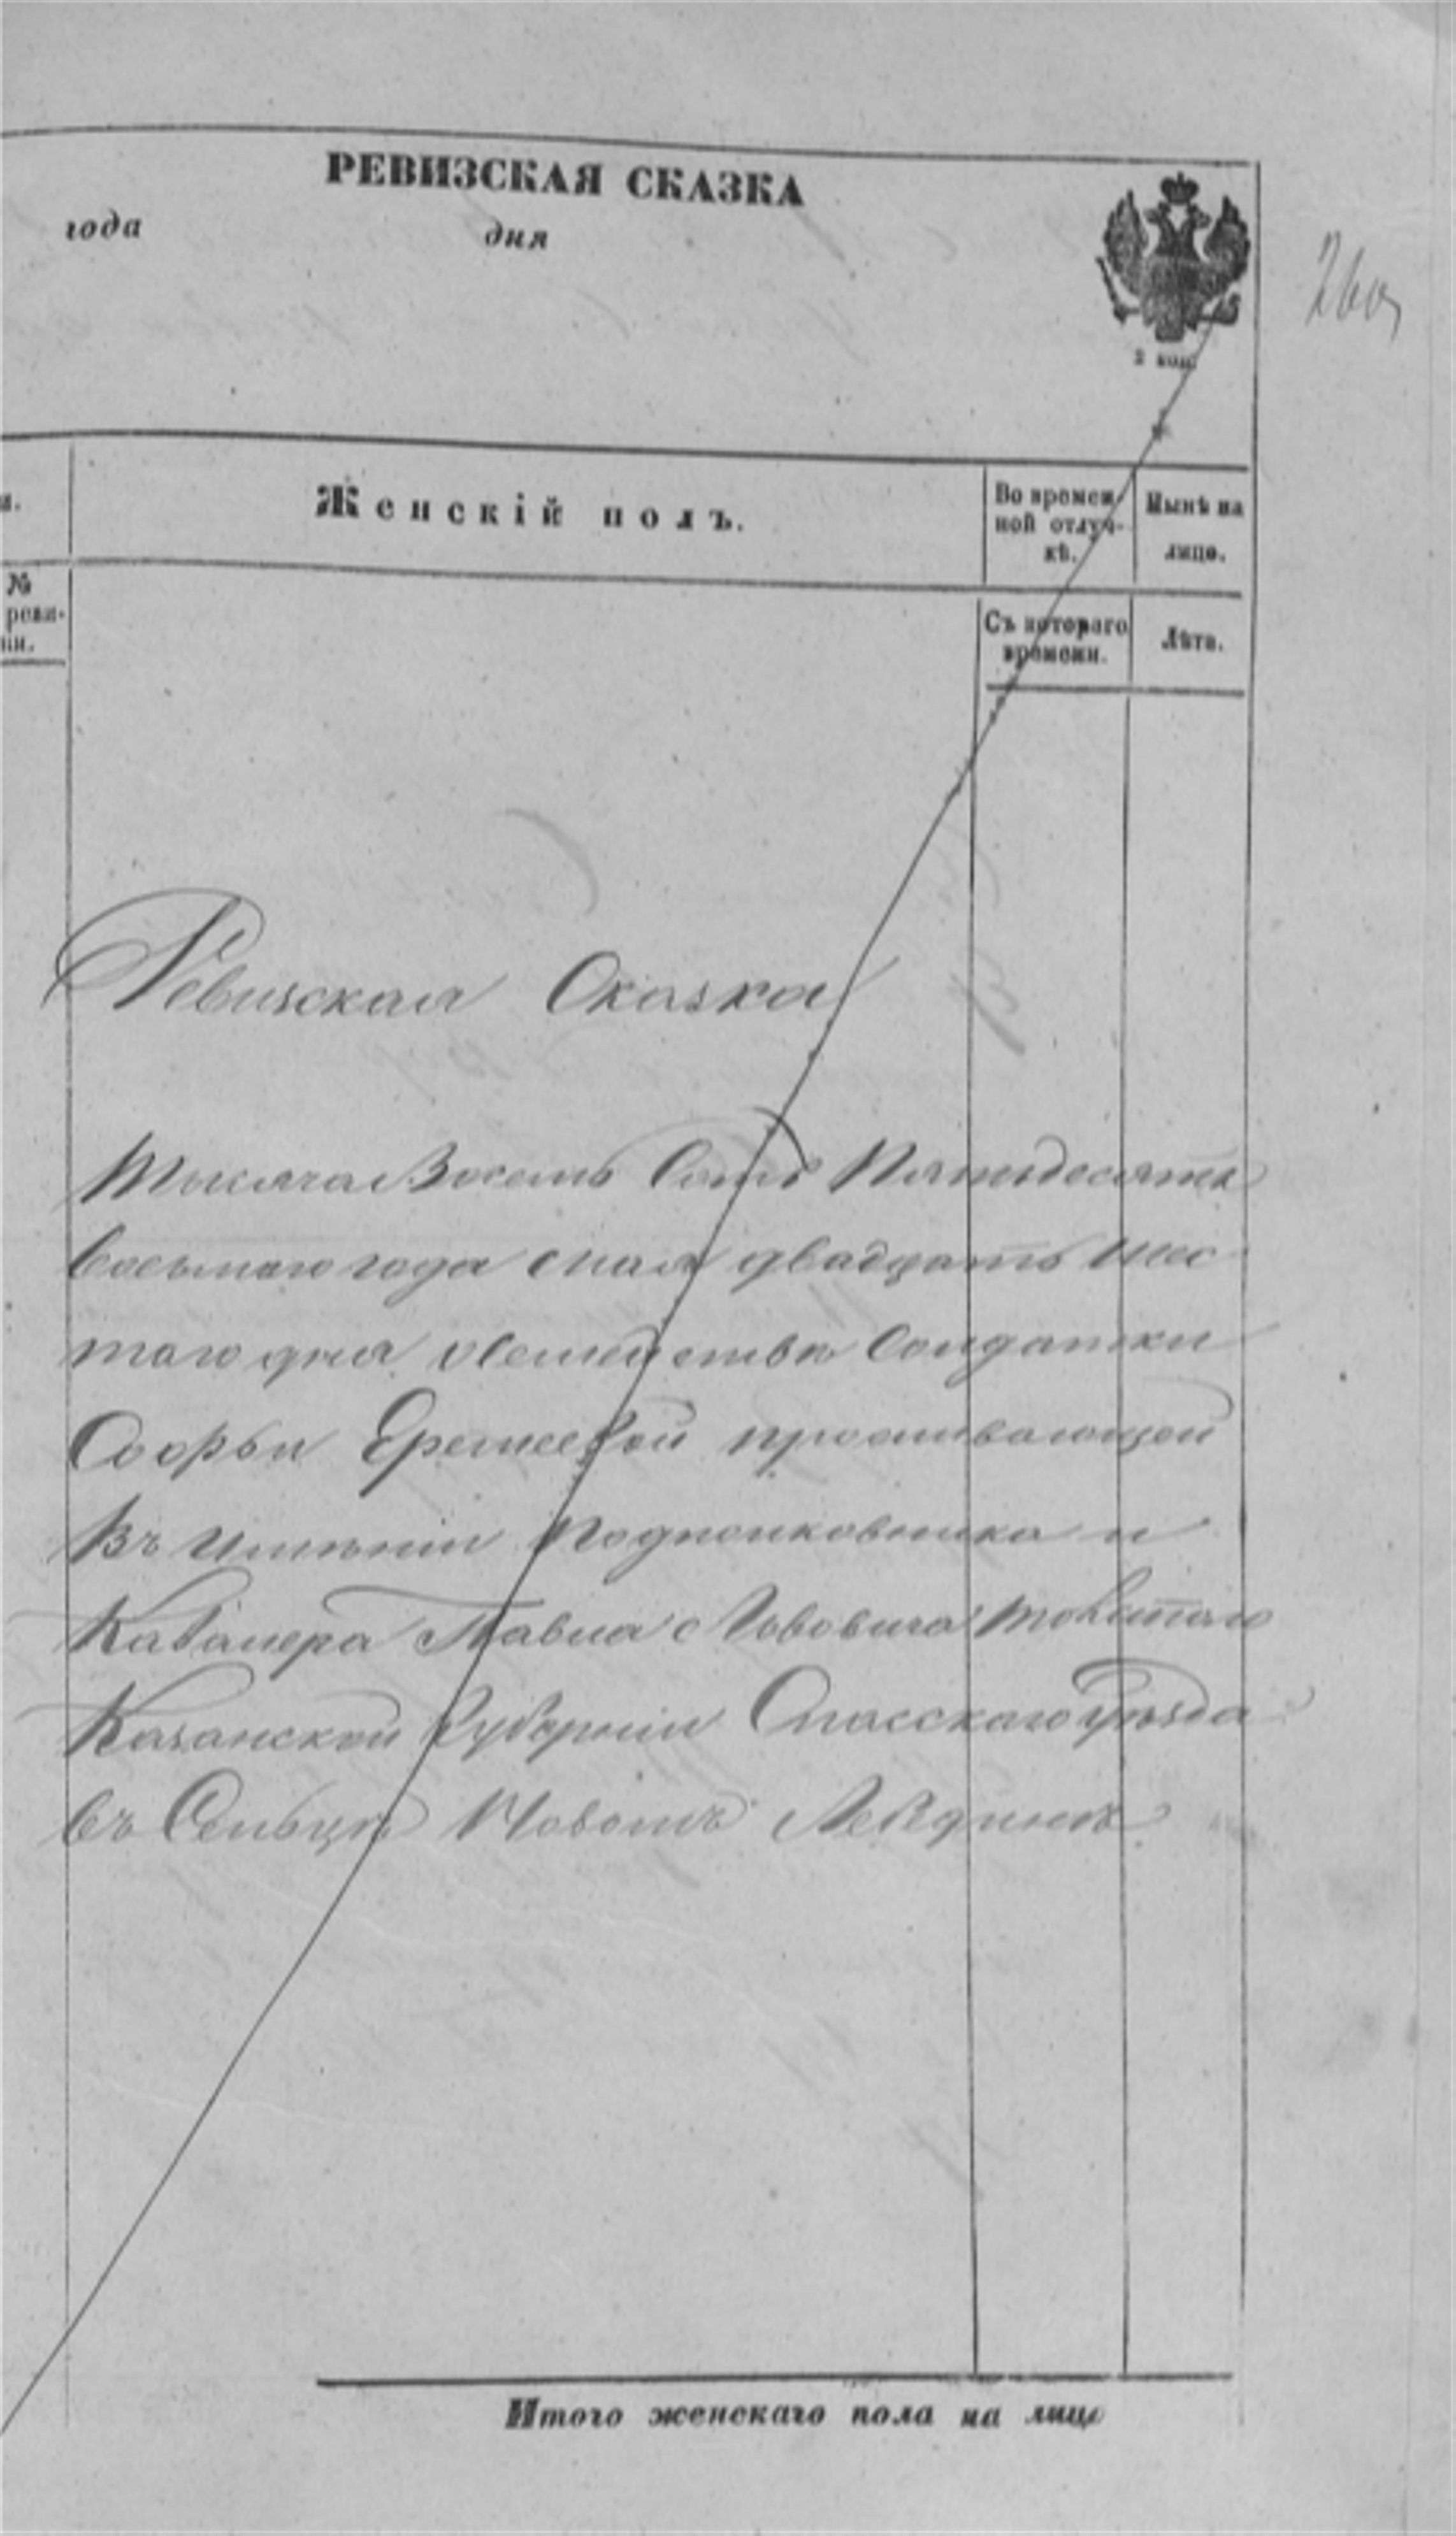 РЕВИЗСКАЯ СКАЗКА
года дня
2 коп.
Женскій полъ.
Во времен-
ной отлуч-
кѣ.
Нынѣ на
лицо.
№
реви-
Съ котораго
времени.
Лѣта.
Ревизская Сказка
Тысяча Восемь Сотъ Пятьдесятъ
восьмаго года мая двадцать шес
таго дня семейства солдатки
Софьи Еремеевой проживающей
Въ имѣніи Подполковника и
Кавалера Павла Львовича Толстаго
Казанской Губерніи Спасскаго уѣзда
въ Сельцѣ Новомъ
Итого женскаго пола на лицо